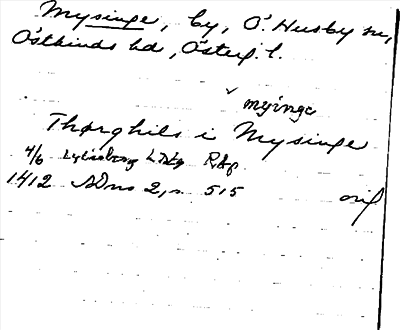 Mysinge, by, Ö. Husby sn,
Östkinds hd, Österg. l.
myinge
Thorghils i Mysinge
4/6 Rap
1412 SDns 2, n 515 orig